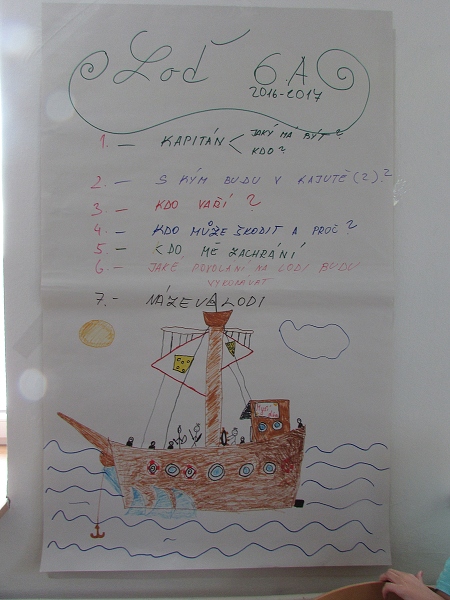 Loď 6.A
2016-2017
1. — KAPITÁN < JAKÝ MÁ BÝT?
KDO?
2. — S KÝM BUDU V KAJUTĚ (2).?
3. — KDO VAŘÍ?
4. — KDO MŮŽE ŠKODIT A PROČ?
5. — KDO MĚ ZACHRÁNÍ
6. — JAKÉ POVOLÁNÍ NA LODI BUDU
VYKONÁVAT
7. — NÁZEV LODI